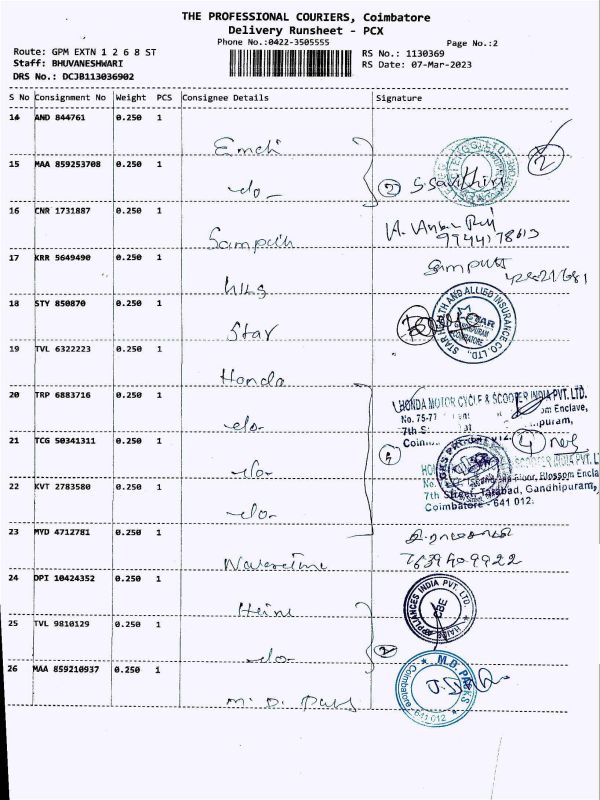 THE PROFESSIONAL COURIERS, Coimbatore
Delivery Runsheet - PCX
Phone No.:0422-3505555
Page No.:2
Route: GPM EXTN 1 2 6 8 ST
RS No.: 1130369
Staff: BHUVANESHWARI
RS Date: 07-Mar-2023
DRS No.: DCJB113036902
S No Consignment No Weight PCS Consignee Details Signature
14 AND 844761 0.250 1
Emdi
2
15 MAA 859253708 0.250 1
-do-
2 S. Savithiri
16 CNR 1731887 0.250 1
Sampath
17 KRR 5649490 0.250 1
18 STY 850870 0.250 1
Star
STAR HEALTH AND ALLIED INSURANCE CO. LTD.,
STAR
GANDHIPURAM
COIMBATORE
19 TVL 6322223 0.250 1
Honda
20 TRP 6883716 0.250 1
-do-
HONDA MOTOR CYCLE & SCOOTER INDIA PVT. LTD.
No. 75-77
om Enclave,
7th S
puram,
21 TCG 50341311 0.250 1
-do-
4
SCOOTER INDIA PVT. L
Floor, Blossom Encla
7th Street, Tatabad, Gandhipuram,
Coimbatore - 641 012.
22 KVT 2783580 0.250 1
-do-
23 MYD 4712781 0.250 1
7639409922
24 DPI 10424352 0.250 1
APPLIANCES INDIA PVT. LTD.
CBE
25 TVL 9810129 0.250 1
-do-
2
26 MAA 859210937 0.250 1
M. D. Parks
M.D. PARKS
Coimbatore
641 012